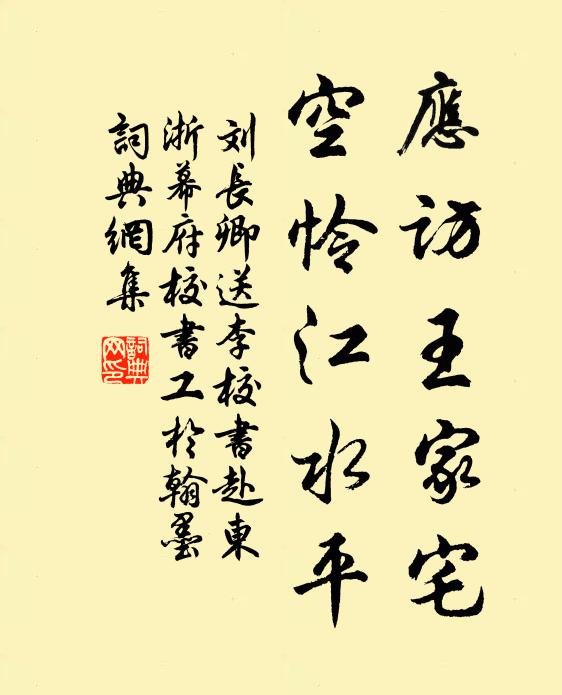 應訪王家宅
空憐江水平
刘長卿送李校書赴東
浙幕府校書工於翰墨
詞典網集
詞典
网印